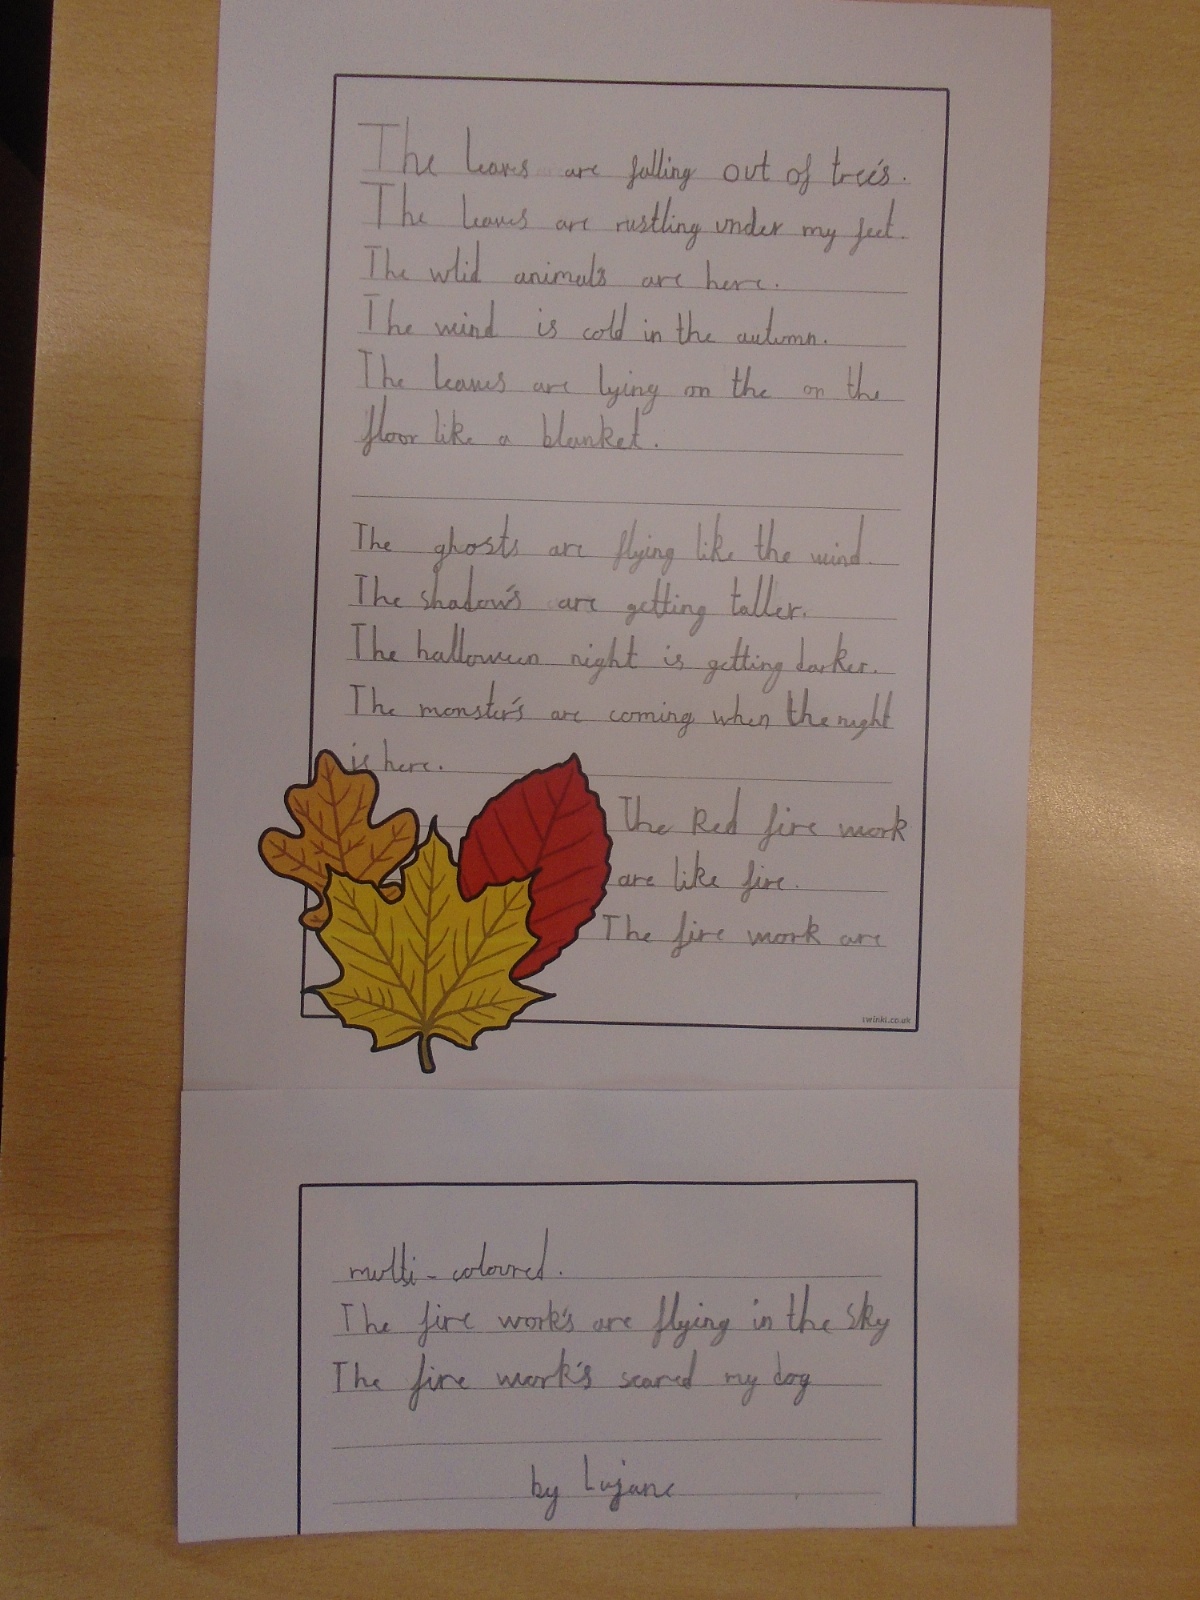 The leaves are falling out of tree's.
The leaves are rustling under my feet.
The wlid animals are here.
The wind is cold in the autumn.
The leaves are lying on the on the
floor like a blanket.
The ghosts are flying like the wind.
The shadow's are getting taller.
The halloween night is getting darker.
The monster's are coming when the night
is here.
The Red fire work
are like fire.
The fire work are
twinkl.co.uk
multi-coloured.
The fire work's are flying in the sky
The fire work's scared my dog
by Lujane